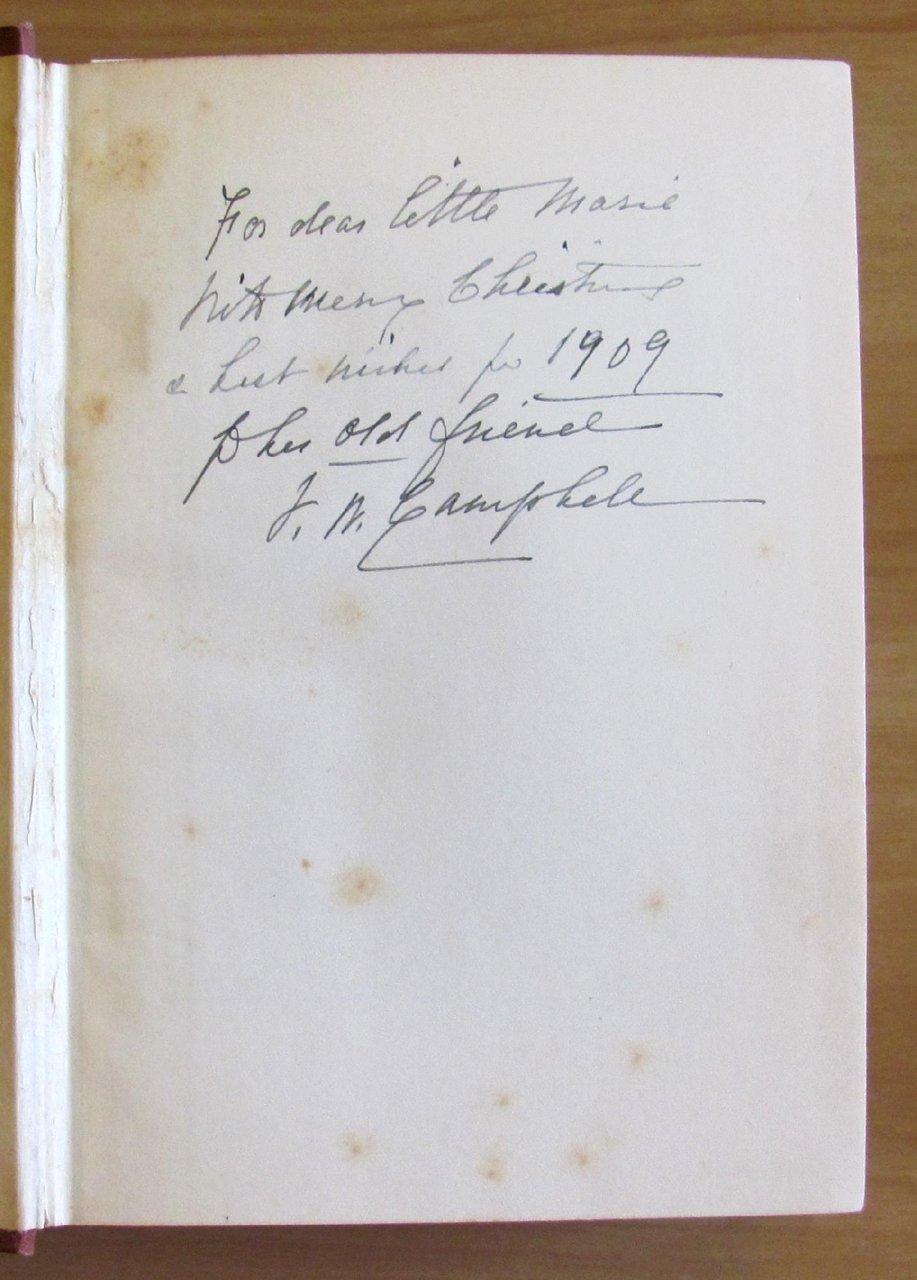 For dear little Marie
With Merry Christmas
& best wishes for 1909
her old friend
W. Campbell